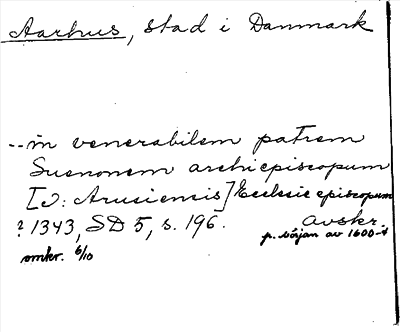 Aarhus, stad i Danmark
--in venerabilem patrem
Suenonem archiepiscopum
[ɔ: Arusiensis] Ecclesie episcopum
? 1343, SD 5, s. 196. Avskr.
omkr. 6/10 p. början av 1600-t